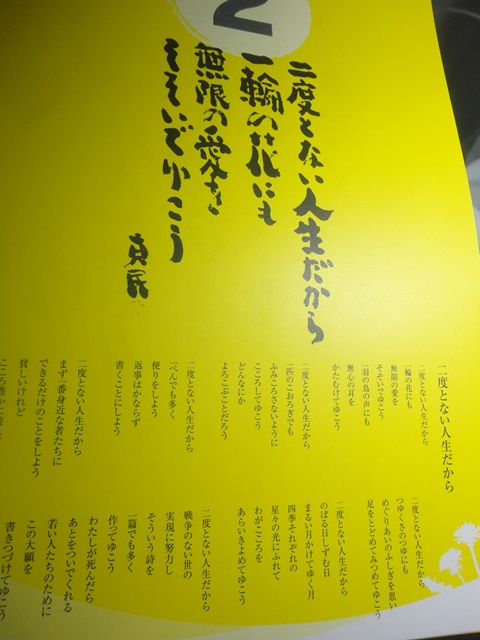 2
二度とない人生だから
一輪の花にも
無限の愛を
そそいでゆこう
真民
二度とない人生だから
二度とない人生だから
一輪の花にも
無限の愛を
そそいでゆこう
一羽の鳥の声にも
無心の耳を
かたむけてゆこう
二度とない人生だから
一匹のこおろぎでも
ふみころさないように
こころしてゆこう
どんなにか
よろこぶことだろう
二度とない人生だから
一ぺんでも多く
便りをしよう
返事はかならず
書くことにしよう
二度とない人生だから
まず一番身近な者たちに
できるだけのことをしよう
貧しいけれど
二度とない人生だから
つゆくさのつゆにも
めぐりあいのふしぎを思い
足をとどめてみつめてゆこう
二度とない人生だから
のぼる日しずむ日
まるい月かけてゆく月
四季それぞれの
星々の光にふれて
わがこころを
あらいきよめてゆこう
二度とない人生だから
戦争のない世の
実現に努力し
そういう詩を
一篇でも多く
作ってゆこう
わたしが死んだら
あとをついでくれる
若い人たちのために
この大願を
書きつづけてゆこう